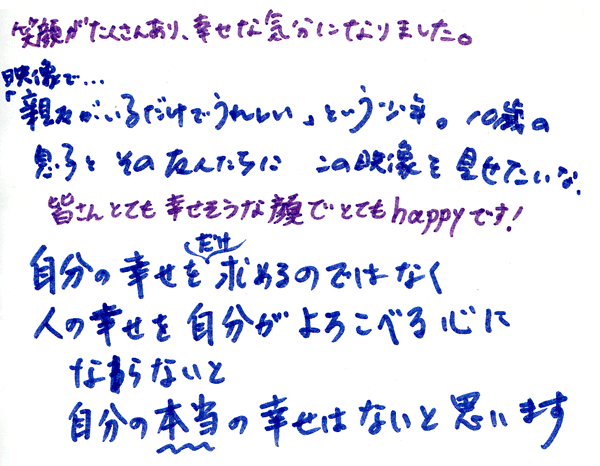 笑顔がたくさんあり、幸せな気分になりました。
映像で…
「親友がいるだけでうれしい」という少年。10歳の
息子とその友人たちに この映像を見せたいな。
皆さんとても幸せそうな顔でとてもhappyです!
だけ
自分の幸せを求めるのではなく
人の幸せを自分がよろこべる心に
ならないと
自分の本当の幸せはないと思います